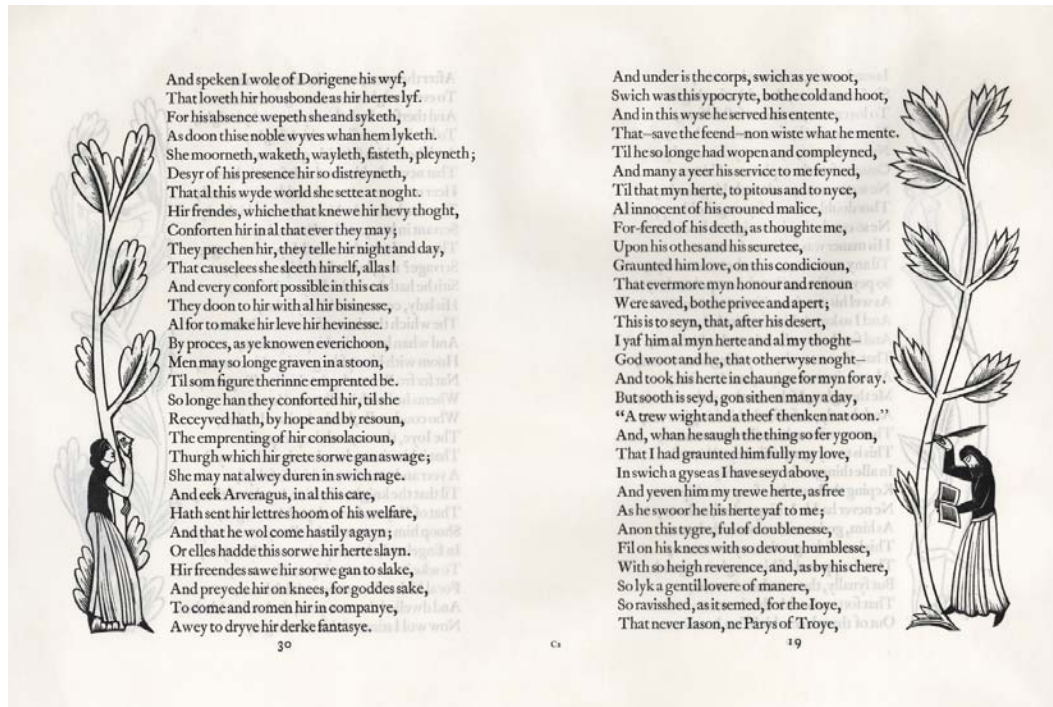 And speken I wole of Dorigene his wyf,
That loveth hir housbonde as hir hertes lyf.
For his absence wepeth she and syketh,
As doon thise noble wyves whan hem lyketh.
She moorneth, waketh, wayleth, fasteth, pleyneth;
Desyr of his presence hir so distreyneth,
That al this wyde world she sette at noght.
Hir frendes, whiche that knewe hir hevy thoght,
Conforten hir in al that ever they may;
They prechen hir, they telle hir night and day,
That causelees she sleeth hirself, allas!
And every confort possible in this cas
They doon to hir with al hir bisinesse,
Al for to make hir leve hir hevinesse.
By proces, as ye knowen everichoon,
Men may so longe graven in a stoon,
Til som figure therinne emprented be.
So longe han they conforted hir, til she
Receyved hath, by hope and by resoun,
The emprenting of hir consolacioun,
Thurgh which hir grete sorwe gan aswage;
She may nat alwey duren in swich rage.
And eek Arveragus, in al this care,
Hath sent hir lettres hoom of his welfare,
And that he wol come hastily agayn;
Or elles hadde this sorwe hir herte slayn.
Hir freendes sawe hir sorwe gan to slake,
And preyede hir on knees, for goddes sake,
To come and romen hir in companye,
Awey to dryve hir derke fantasye.
30
C2
And under is the corps, swich as ye woot,
Swich was this ypocryte, bothe cold and hoot,
And in this wyse he served his entente,
That—save the feend—non wiste what he mente.
Til he so longe had wopen and compleyned,
And many a yeer his service to me feyned,
Til that myn herte, to pitous and to nyce,
Al innocent of his crouned malice,
For-fered of his deeth, as thoughte me,
Upon his othes and his seuretee,
Graunted him love, on this condicioun,
That evermore myn honour and renoun
Were saved, bothe privee and apert;
This is to seyn, that, after his desert,
I yaf him al myn herte and al my thoght—
God woot and he, that otherwyse noght—
And took his herte in chaunge for myn for ay.
But sooth is seyd, gon sithen many a day,
"A trew wight and a theef thenken nat oon."
And, whan he saugh the thing so fer ygoon,
That I had graunted him fully my love,
In swich a gyse as I have seyd above,
And yeven him my trewe herte, as free
As he swoor he his herte yaf to me;
Anon this tygre, ful of doublenesse,
Fil on his knees with so devout humblesse,
With so heigh reverence, and, as by his chere,
So lyk a gentil lovere of manere,
So ravisshed, as it semed, for the Ioye,
That never Iason, ne Parys of Troye,
19